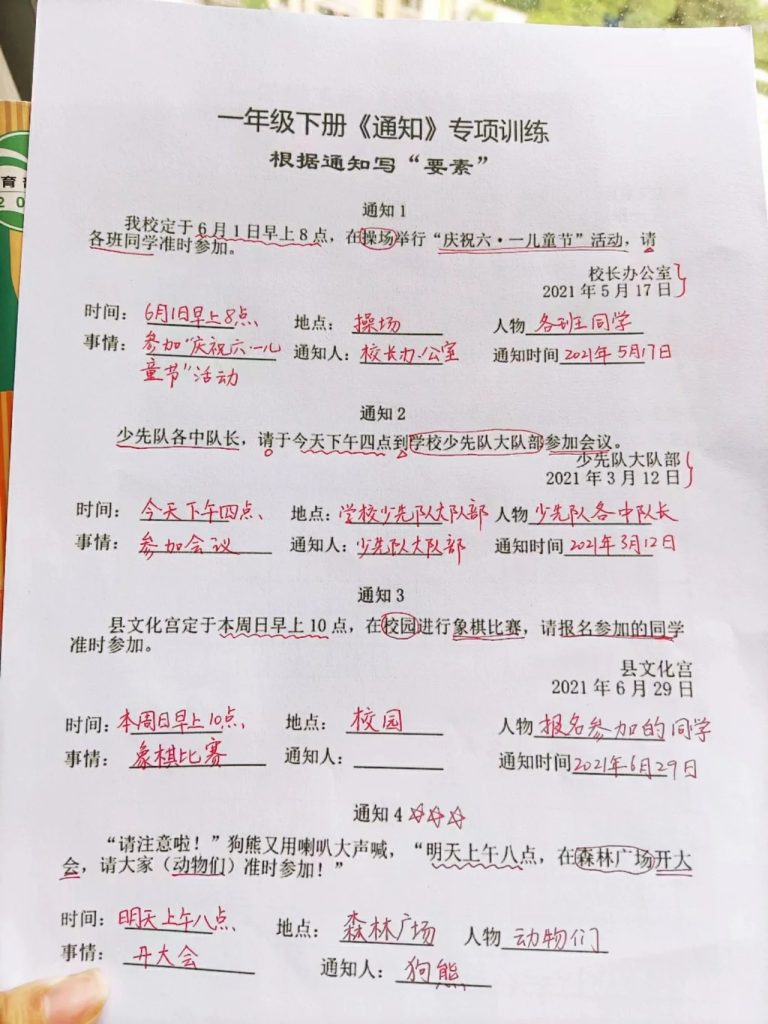 一年级下册《通知》专项训练
根据通知写“要素”
通知1
我校定于6月1日早上8点，在操场举行“庆祝六·一儿童节”活动，请
各班同学准时参加。
校长办公室
2021年5月17日
时间：6月1日早上8点、 地点：操场 人物 各班同学
事情：参加“庆祝六·一儿 通知人：校长办公室 通知时间 2021年5月17日
童节”活动
通知2
少先队各中队长，请于今天下午四点到学校少先队大队部参加会议。
少先队大队部
2021年3月12日
时间：今天下午四点、 地点：学校少先队大队部 人物 少先队各中队长
事情：参加会议 通知人：少先队大队部 通知时间 2021年3月12日
通知3
县文化宫定于本周日早上10点，在校园进行象棋比赛，请报名参加的同学
准时参加。
县文化宫
2021年6月29日
时间：本周日早上10点、 地点：校园 人物 报名参加的同学
事情：象棋比赛 通知人： 通知时间 2021年6月29日
通知4☆☆☆
“请注意啦！”狗熊又用喇叭大声喊，“明天上午八点，在森林广场开大
会，请大家（动物们）准时参加！”
时间：明天上午八点、 地点：森林广场 人物 动物们
事情：开大会 通知人：狗熊
育
20